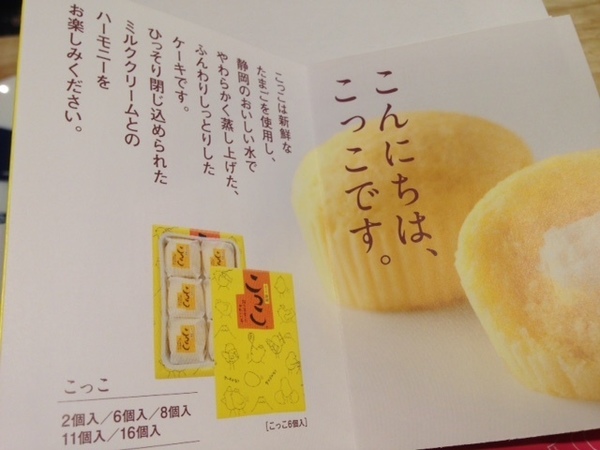 こんにちは、
こっこです。
こっこは新鮮な
たまごを使用し、
静岡のおいしい水で
やわらかく蒸し上げた、
ふんわりしっとりした
ケーキです。
ひっそり閉じ込められた
ミルククリームとの
ハーモニーを
お楽しみください。
こっこ
こっこ
こっこ
こっこ
[こっこ6個入]
こっこ
2個入／6個入／8個入
11個入／16個入